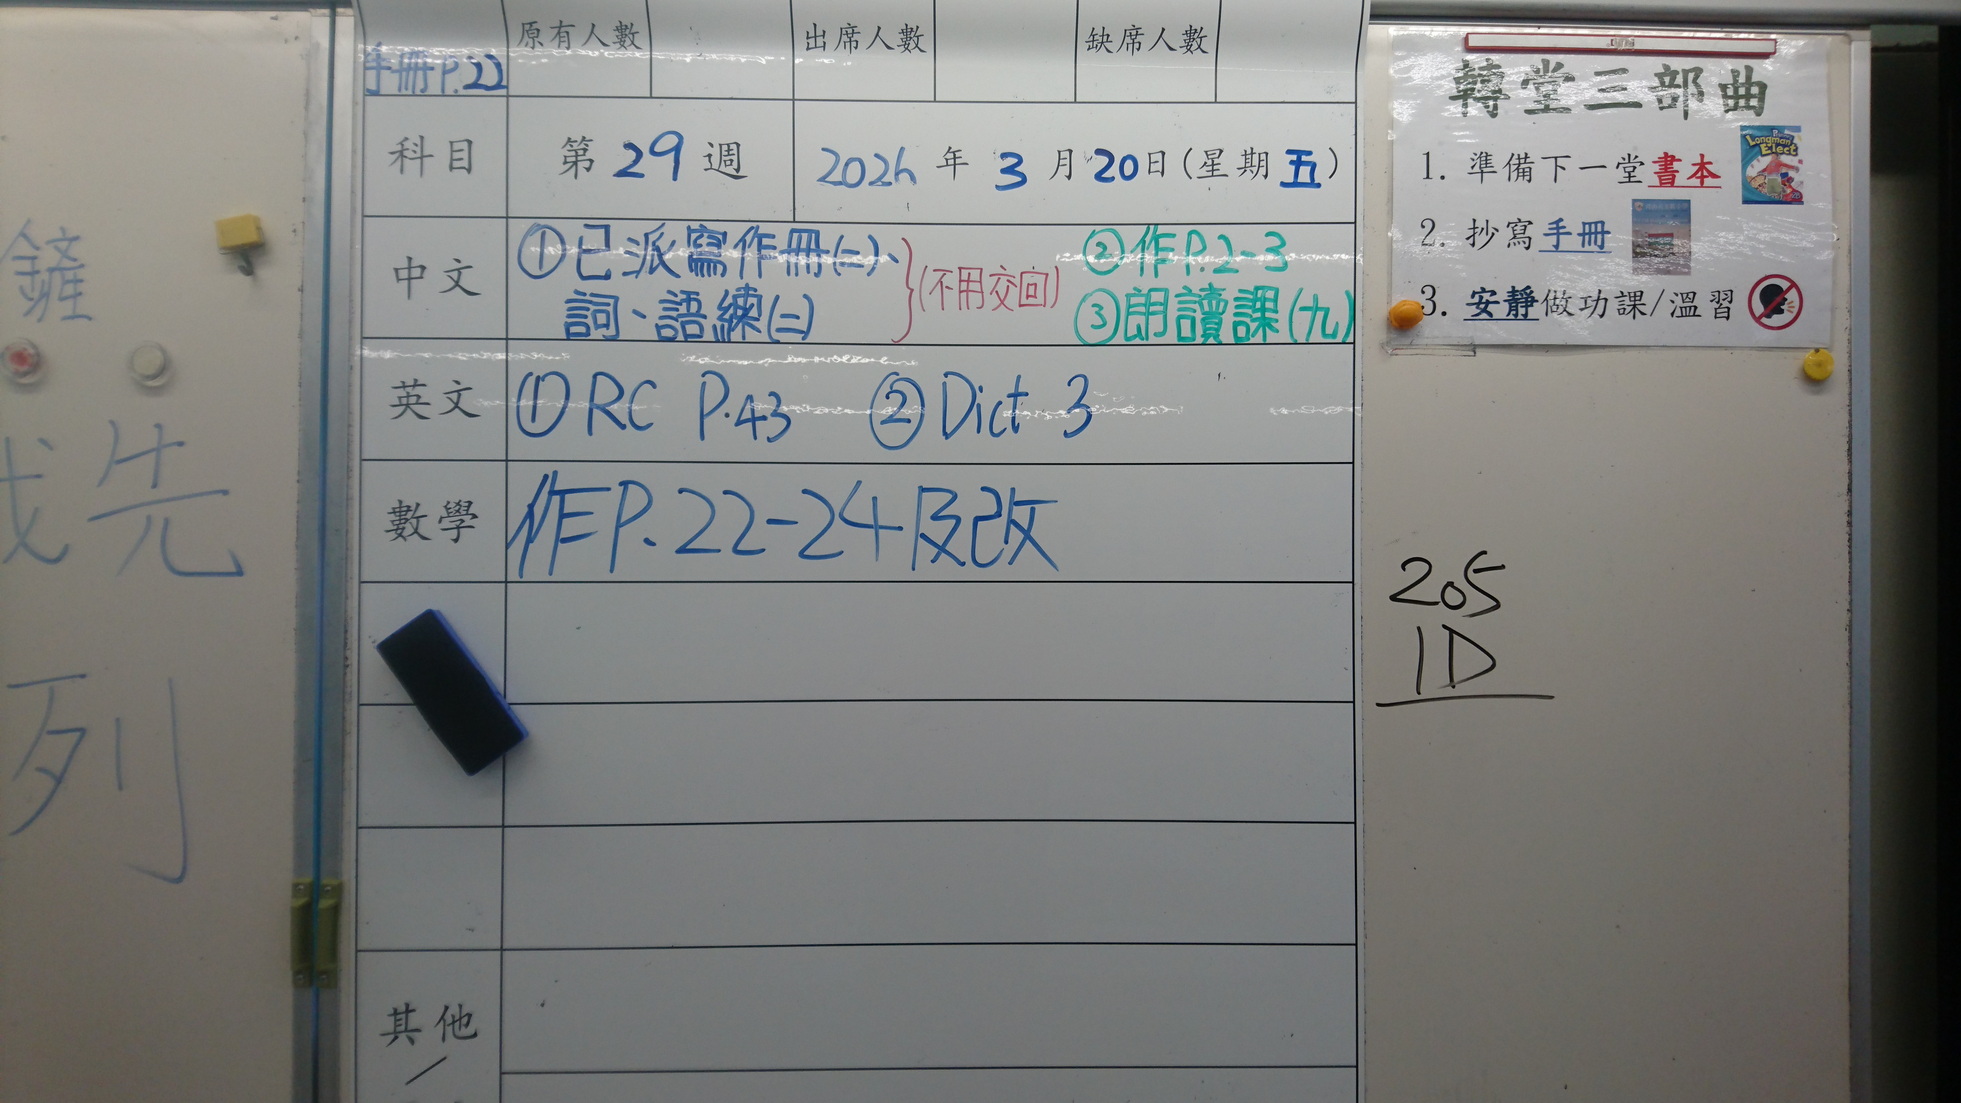 鏟
先
列
原有人數 出席人數 缺席人數
手冊P.22
科目 第29週 2026年3月20日(星期五)
中文 ①已派寫作冊(二)、
詞、語練(二)
(不用交回)
②作P.2-3
③朗讀課(九)
英文 ①RC P.43 ②Dict 3
數學 作P.22-24及改
其他
轉堂三部曲
1. 準備下一堂書本
Longman
Elect
2. 抄寫手冊
3. 安靜做功課/溫習
205
1D